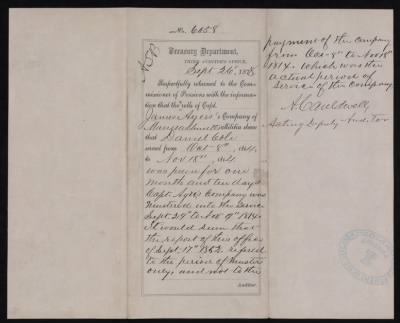 No. 6058
Treasury Department,
THIRD AUDITOR'S OFFICE,
Sept 26, 1878
Respectfully returned to the Com-
missioner of Pensions with the informa-
tion that the rolls of Capt.
James Ayer's Company of
Massachusetts Militia show
that Daniel Cole
served from Oct 8th, 1814,
to Nov 18th, 1814
was paid for one
month and ten days
Capt. Ayer's Company was
mustered into the service
Sept. 24th to Nov 9th 1814.
It would seem that
the report of this office
of Sept. 17th 1862 referred
to the period of muster
only, and not to the
Auditor.
payment of the Company
from Oct- 8th to Nov 18th
1814. which was the
actual period of
service of the Company
A. Cauldwell
Acting Deputy Auditor